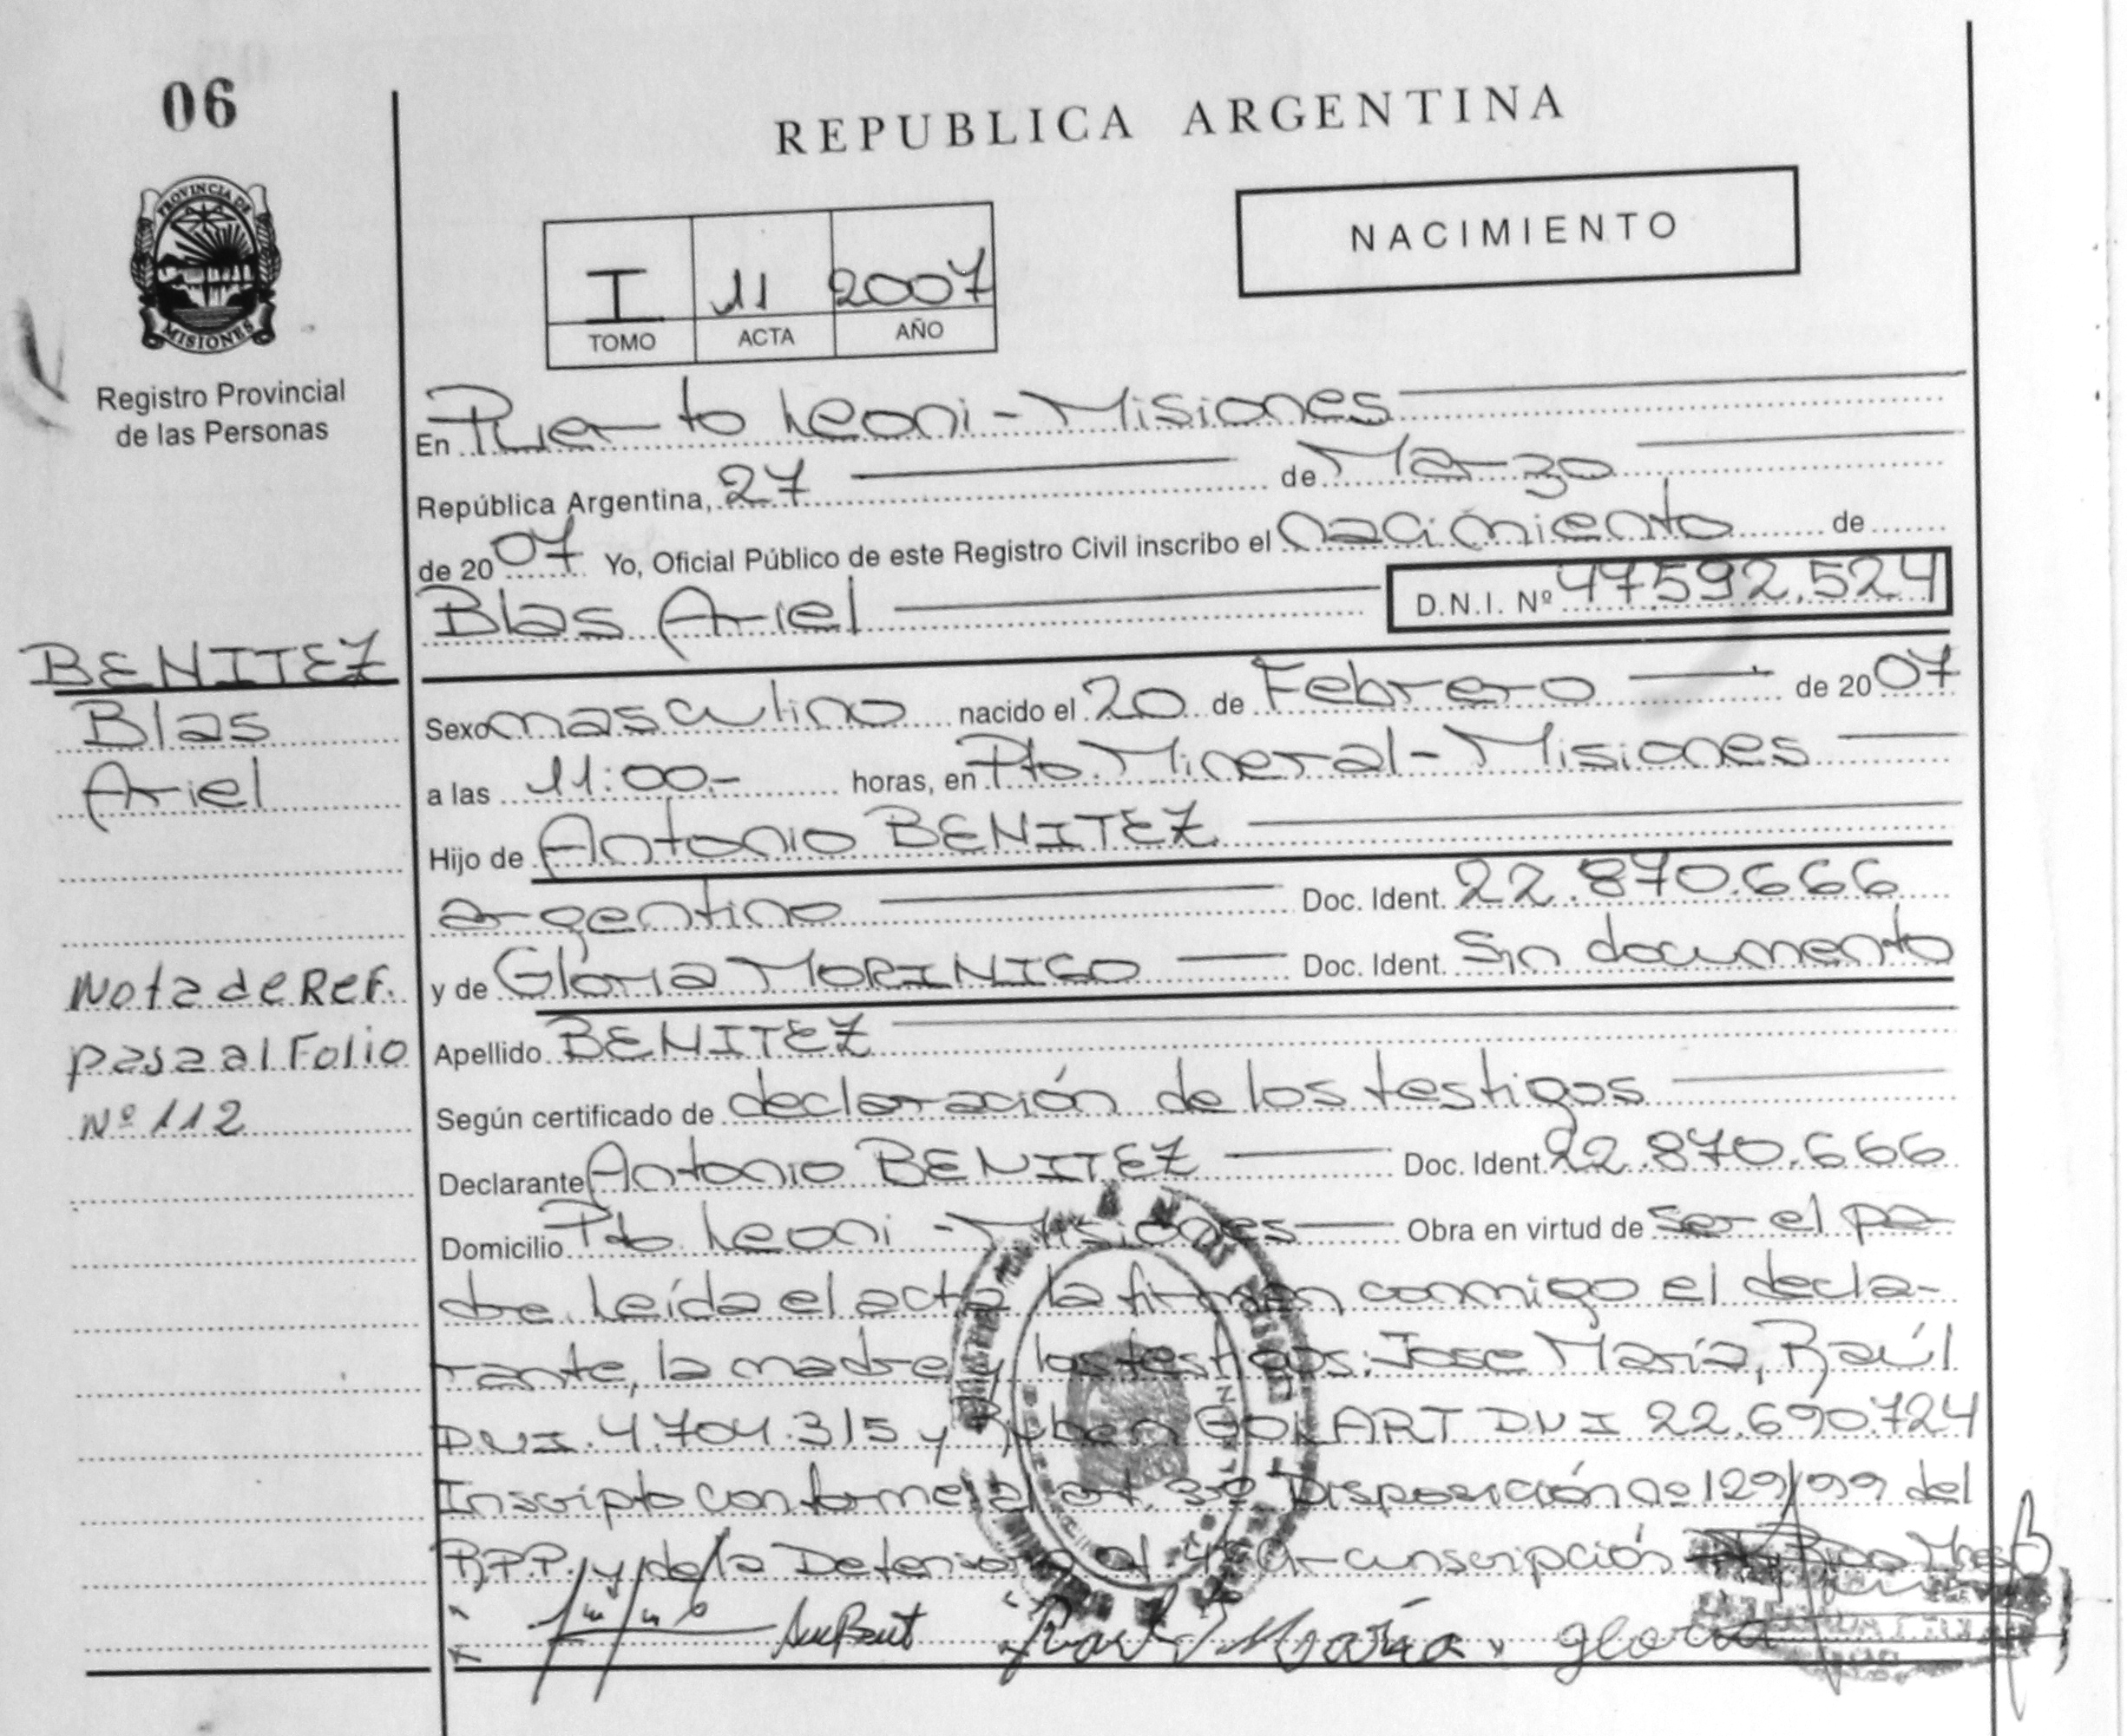 06
REPUBLICA ARGENTINA
PROVINCIA DE
MISIONES
NACIMIENTO
I 11 2007
TOMO ACTA AÑO
Registro Provincial
de las Personas
En Puerto Leoni - Misiones
República Argentina, 27 de Marzo
de 2007 Yo, Oficial Público de este Registro Civil inscribo el nacimiento de
Blas Ariel D.N.I. Nº 47.592.524
BENITEZ
Blas
Ariel
Sexo masculino nacido el 20 de Febrero de 2007
a las 11:00.- horas, en Pto. Mineral - Misiones
Hijo de Antonio BENITEZ
argentino Doc. Ident. 22.870.666
y de Gloria MORINIGO Doc. Ident. Sin documento
Nota de Ref.
pasa al Folio
Nº 112
Apellido BENITEZ
Según certificado de declaración de los testigos
Declarante Antonio BENITEZ Doc. Ident. 22.870.666
Domicilio Pto. Leoni - Misiones Obra en virtud de ser el pa-
dre. Leída el acta la firman conmigo el decla-
rante, la madre y los testigos: Jose María, Raúl
DNI. 4.704.315 y Ruben GOLART DNI 22.690.724
Inscripto conforme al art. 3º Disposición nº 129/99 del
R.P.P. y de la Defensoría of. 4º Circunscripción
Raul Maria gloria